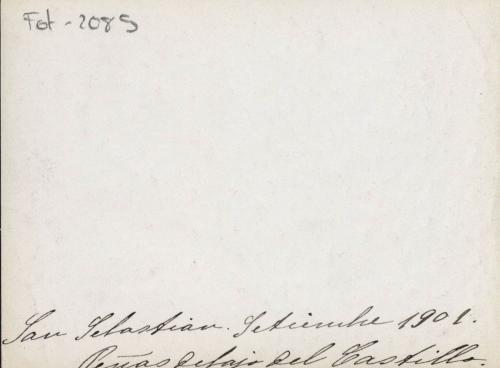 Fot - 2085
San Sebastian. Setiembre 1901.
Peñas debajo del Castillo.